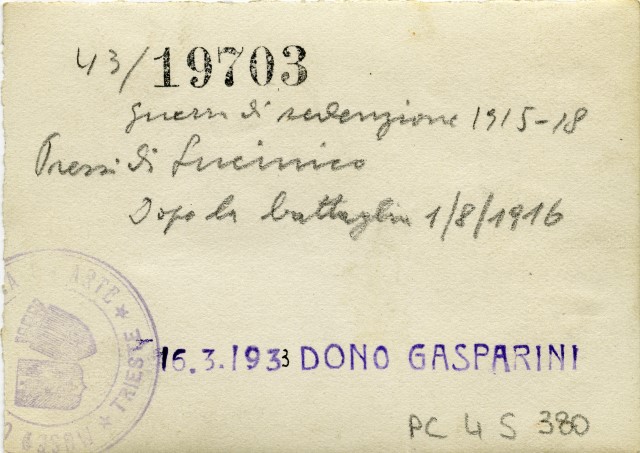 43/19703
guerra di redenzione 1915-18
Pressi di Lucinico
Dopo la battaglia 1/8/1916
ARTE * TRIESTE * MUSEO
16.3.1933 DONO GASPARINI
PC 4 S 380